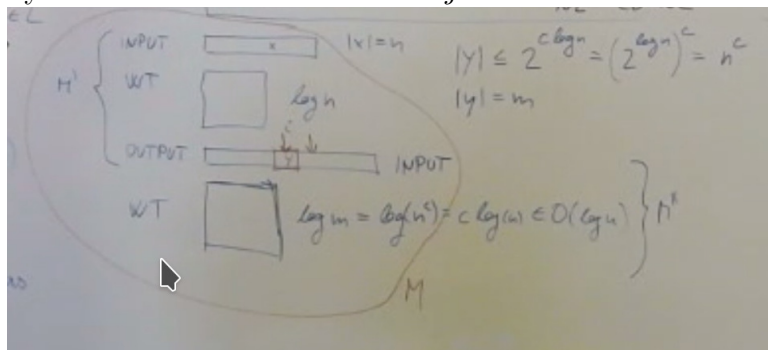 INPUT x |x|=n
M' WT log n
OUTPUT y INPUT
WT log m = log(n^c) = c log(n) ∈ O(log n) } M"
M
|y| ≤ 2^{c log n} = (2^{log n})^c = n^c
|y| = m